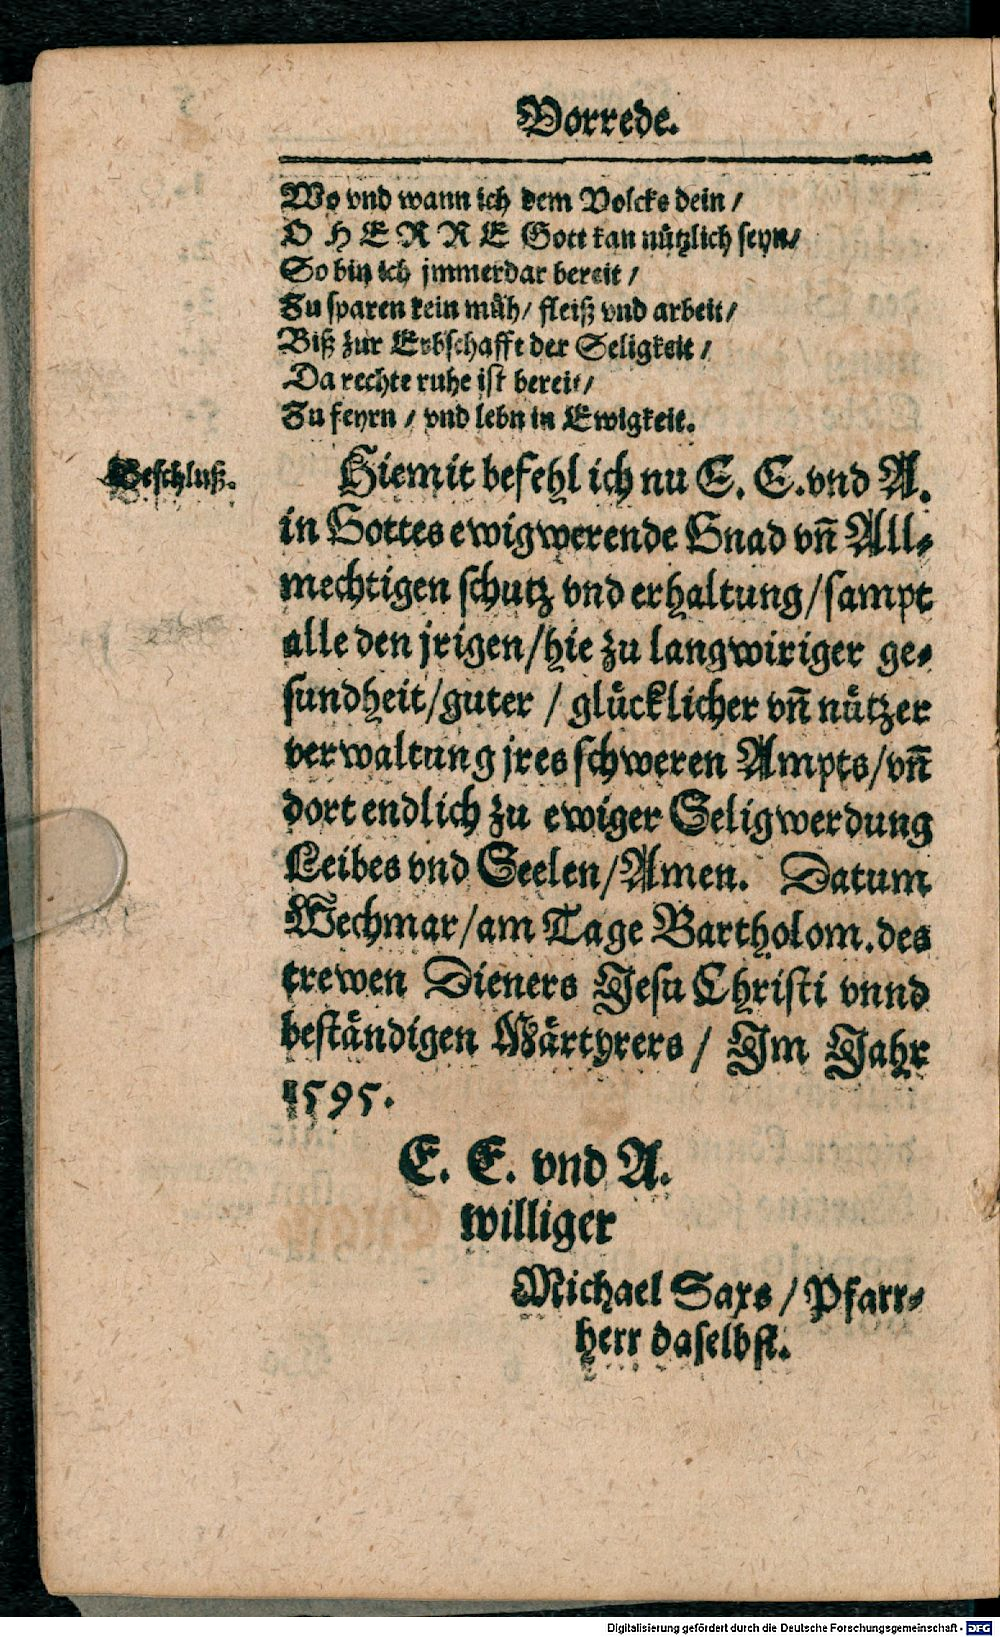 Vorrede.
Wo vnd wann ich dem Volcke dein /
O HERRE Gott kan nützlich seyn/
So bin ich jmmerdar bereit /
Zu sparen kein müh/ fleiß vnd arbeit/
Biß zur Erbschafft der Seligkeit /
Da rechte ruhe ist bereit/
Zu feyrn / vnd lebn in Ewigkeit.
Beschluß.
Hiemit befehl ich nu E. E. vnd A.
in Gottes ewigwerende Gnad vn̄ All-
mechtigen schutz vnd erhaltung/sampt
alle den jrigen/hie zu langwiriger ge-
sundheit/guter / glücklicher vn̄ nützer
verwaltung jres schweren Ampts/vn̄
dort endlich zu ewiger Seligwerdung
Leibes vnd Seelen/Amen. Datum
Wechmar/am Tage Bartholom.des
trewen Dieners Jesu Christi vnnd
beständigen Märtyrers / Im Jahr
1595.
E. E. vnd A.
williger
Michael Saxs / Pfarr-
herr daselbst.
Digitalisierung gefördert durch die Deutsche Forschungsgemeinschaft - DFG